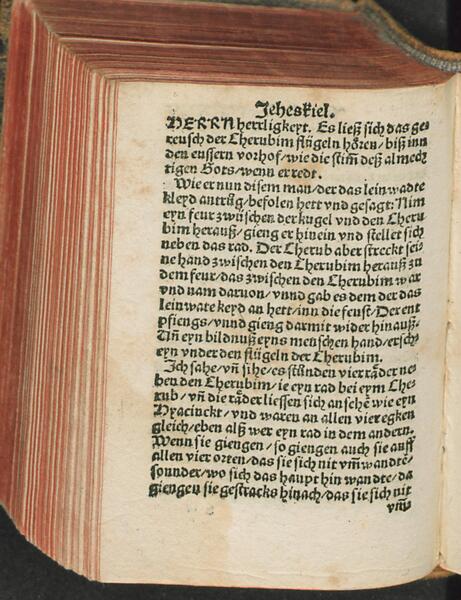 Jeheskiel.
HERRN herrligkeyt. Es ließ sich das ge⸗
reusch der Cherubim flügeln hören/ biß inn
den eussern vorhof/ wie die stim̃ deß almech
tigen Gots/ wenn er redt.
Wie er nun disem man/ der das leinwadte
kleyd antrůg/ befolen hett vnd gesagt: Nim
eyn feur zwüschen der kugel vnd den Cheru
bim herauß/ gieng er hinein vnd stellet sich
neben das rad. Der Cherub aber streckt sei⸗
ne hand zwischen den Cherubim herauß zu
dem feur/ das zwischen den Cherubim war
vnd nam daruon/ vnnd gab es dem der das
leinwate keyd an hett/ inn die feust/ Der ent
pfiengs/ vnnd gieng darmit wider hinauß.
Uñ eyn bildnuß eyns menschen hand/ erschẽ
eyn vnder den flügeln der Cherubim.
Jch sahe/ vñ sihe/ es stůnden vier räder ne⸗
ben den Cherubim/ ie eyn rad bei eym Che⸗
rub/ vñ die räder liessen sich anschẽ wie eyn
Hyacinckt/ vnd waren an allen vier egken
gleich/ eben alß wer eyn rad in dem andern.
Wenn sie giengen/ so giengen auch sie auff
allen vier orten/ das sie sich nit vm̃ wandtẽ/
sounder/ wo sich das haupt hin wandte/ da
giengen sie gestracks hinach/ das sie sich nit
vm̃